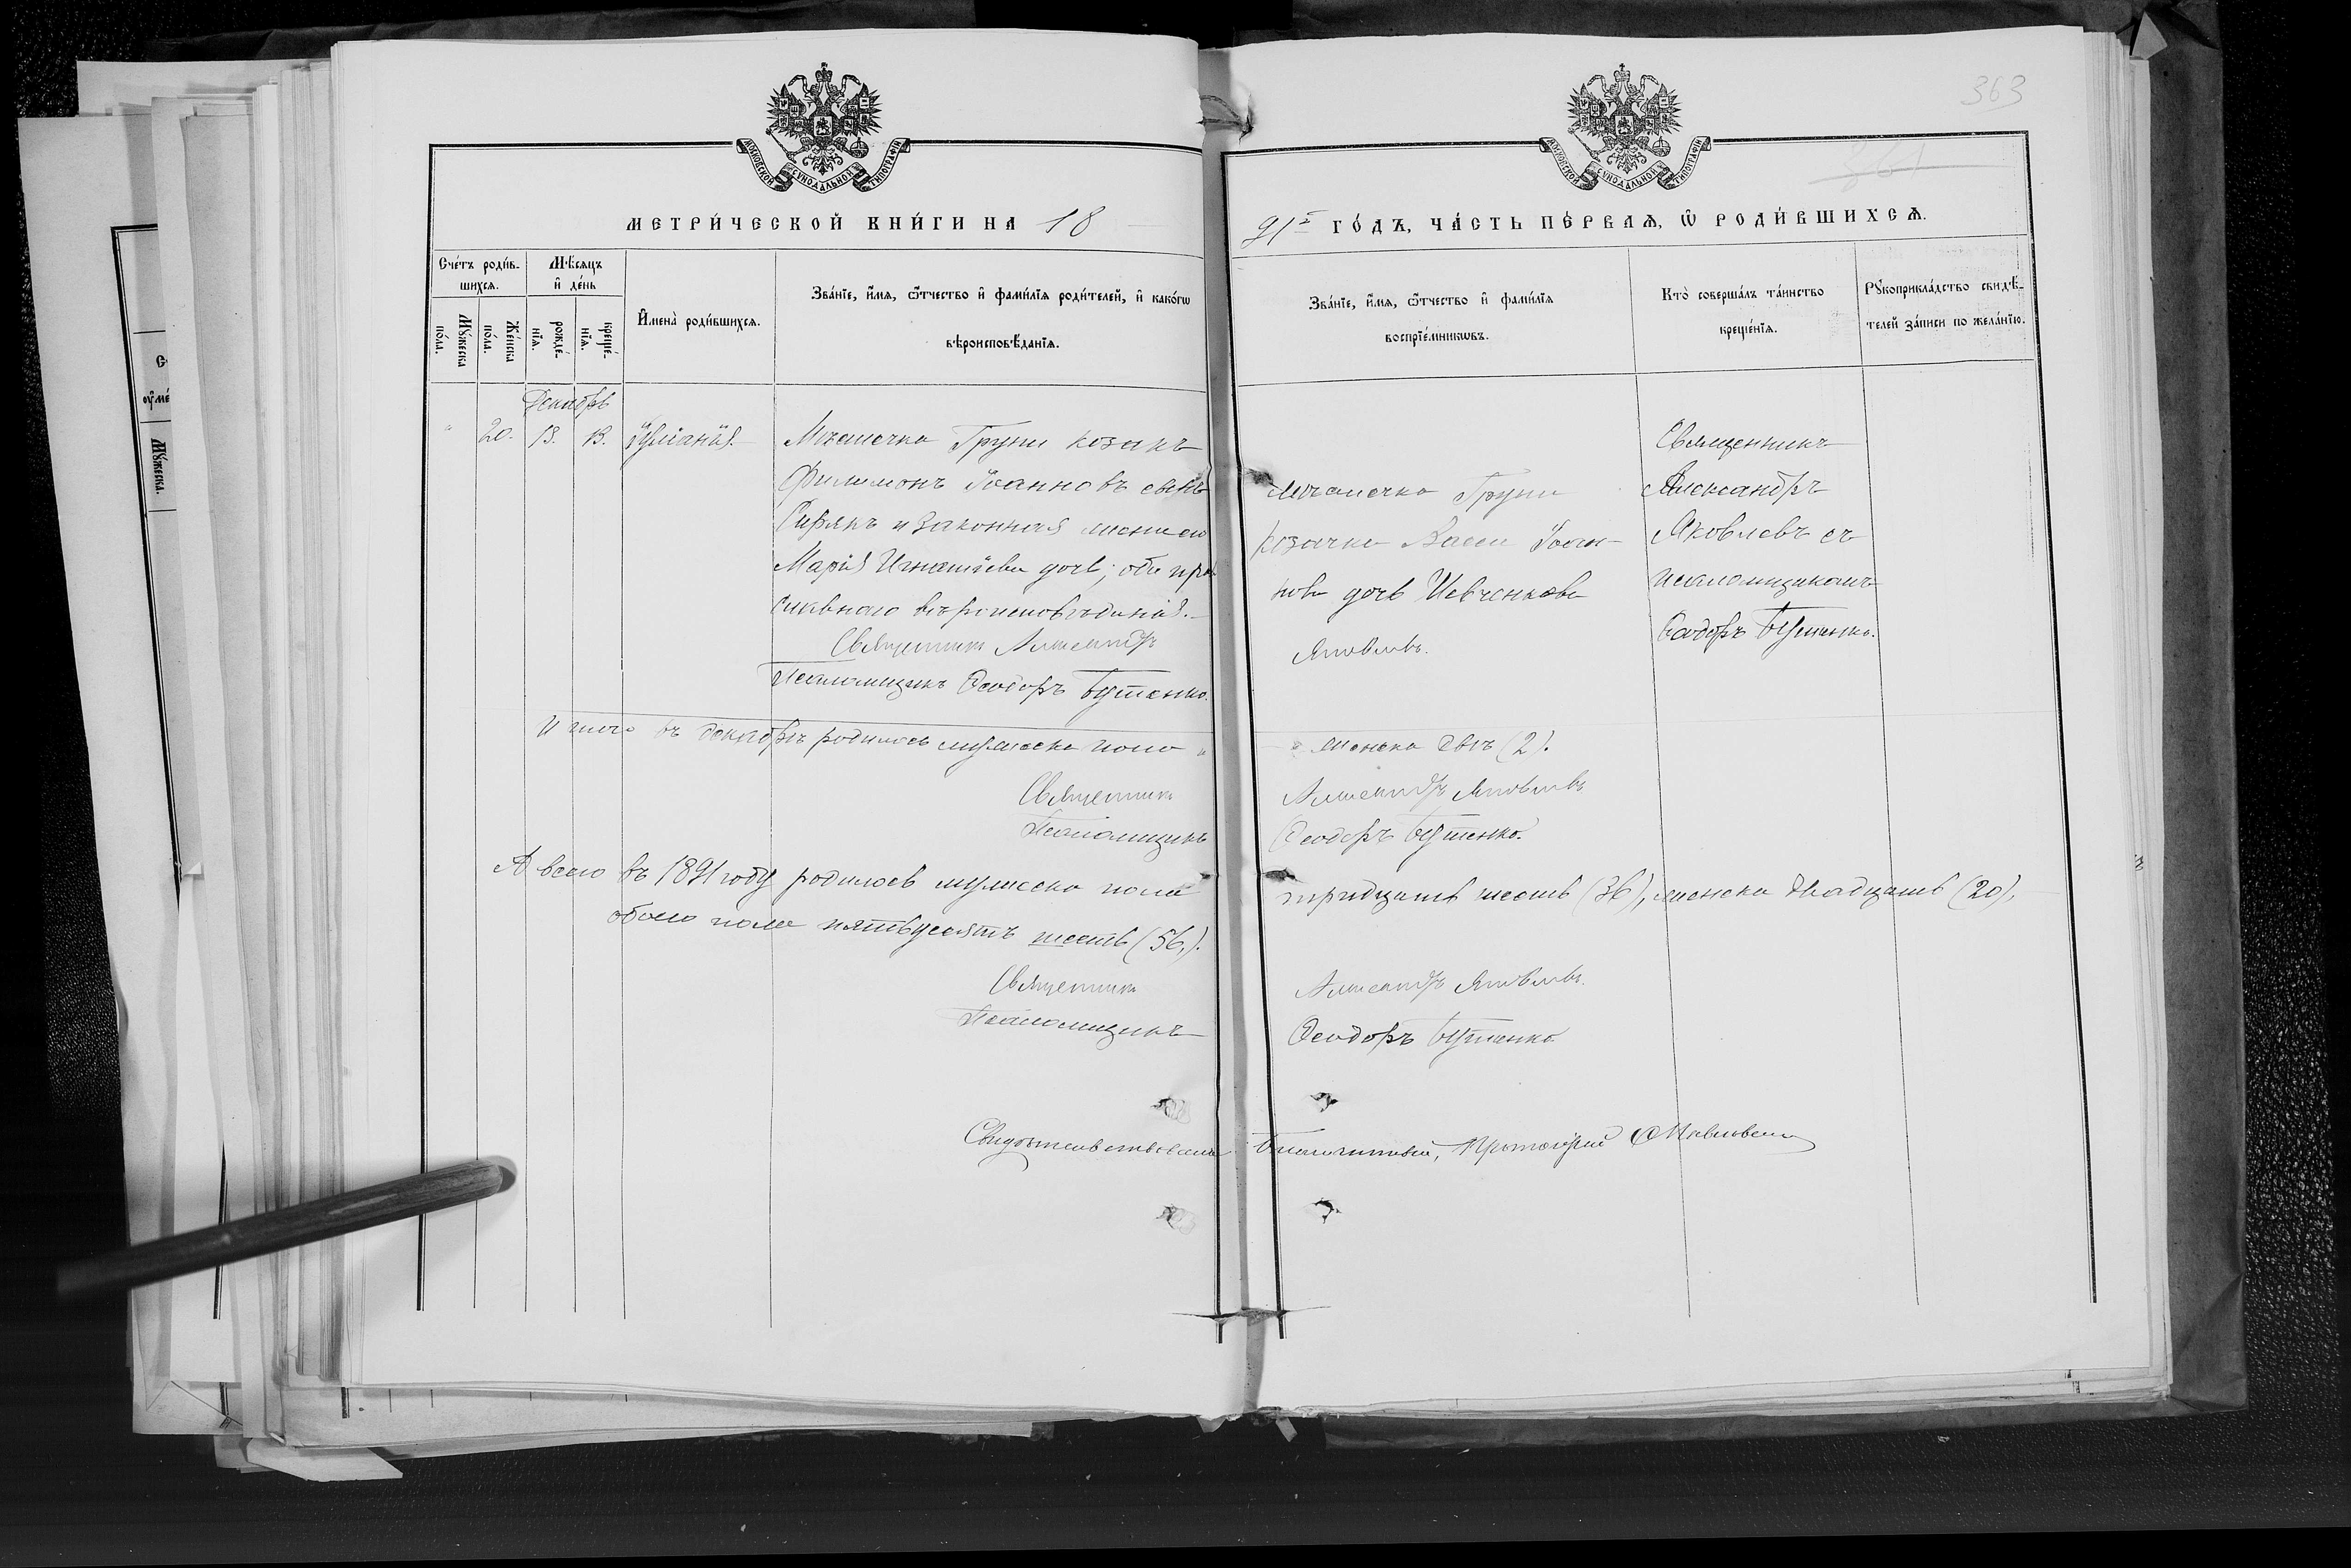 363
361
МОСКОВСКОЙ СѴНОДАЛЬНОЙ ТИПОГРАФІИ
МОСКОВСКОЙ СѴНОДАЛЬНОЙ ТИПОГРАФІИ
МЕТРИ́ЧЕСКОЙ КНИ́ГИ НА 18
91 ГО́ДЪ, ЧА́СТЬ ПЕ́РВАѦ, Ѡ҆ РОДИ́ВШИХСѦ.
Сче́тъ роди́в-
шихсѧ.
Мꙋ́жеска по́ла.
Же́нска по́ла.
Мѣ́сѧцъ
и҆ де́нь
рожде́-
нїѧ.
креще́-
нїѧ.
И҆мена̀ роди́вшихсѧ.
Зва́нїе, и҆́мѧ, ѻ҆́тчество и҆ фами́лїѧ роди́телей, и҆ како́гѡ
вѣроисповѣ́данїѧ.
Зва́нїе, и҆́мѧ, ѻ҆́тчество и҆ фами́лїѧ
воспрїе́мникѡвъ.
Кто̀ соверша́лъ та́инство
креще́нїѧ.
Рꙋкоприкла́дство свидѣ́-
телей за́писи по жела́нїю.
Декабрь
" 20. 13. 13. Іуліанія. Мѣстечка Груни козакъ
Филимонъ Іоанновъ сынъ
и законная жена его
Марія Игнатіева дочь; оба пра-
вославнаго вѣроисповѣданія.
Священникъ Александръ
Псаломщикъ Ѳеодоръ Бутенко.
мѣстечка Груни
козачка Васса Іоан-
нова дочь Шевченкова
Яковлевъ.
Священникъ
Александръ
Яковлевъ съ
псаломщикомъ
Ѳеодоръ Бутенко.
Итого въ декабрѣ родилось мужеска пола " женска двѣ (2).
Священникъ Александръ Яковлевъ
Псаломщикъ Ѳеодоръ Бутенко.
А всего въ 1891 году родилось мужеска пола тридцать шесть (36), женска двадцать (20),
обоего пола пятьдесятъ шесть (56).
Священникъ Александръ Яковлевъ.
Псаломщикъ Ѳеодоръ Бутенко
Благочинный, Протоіерей
Мꙋ́жеска.